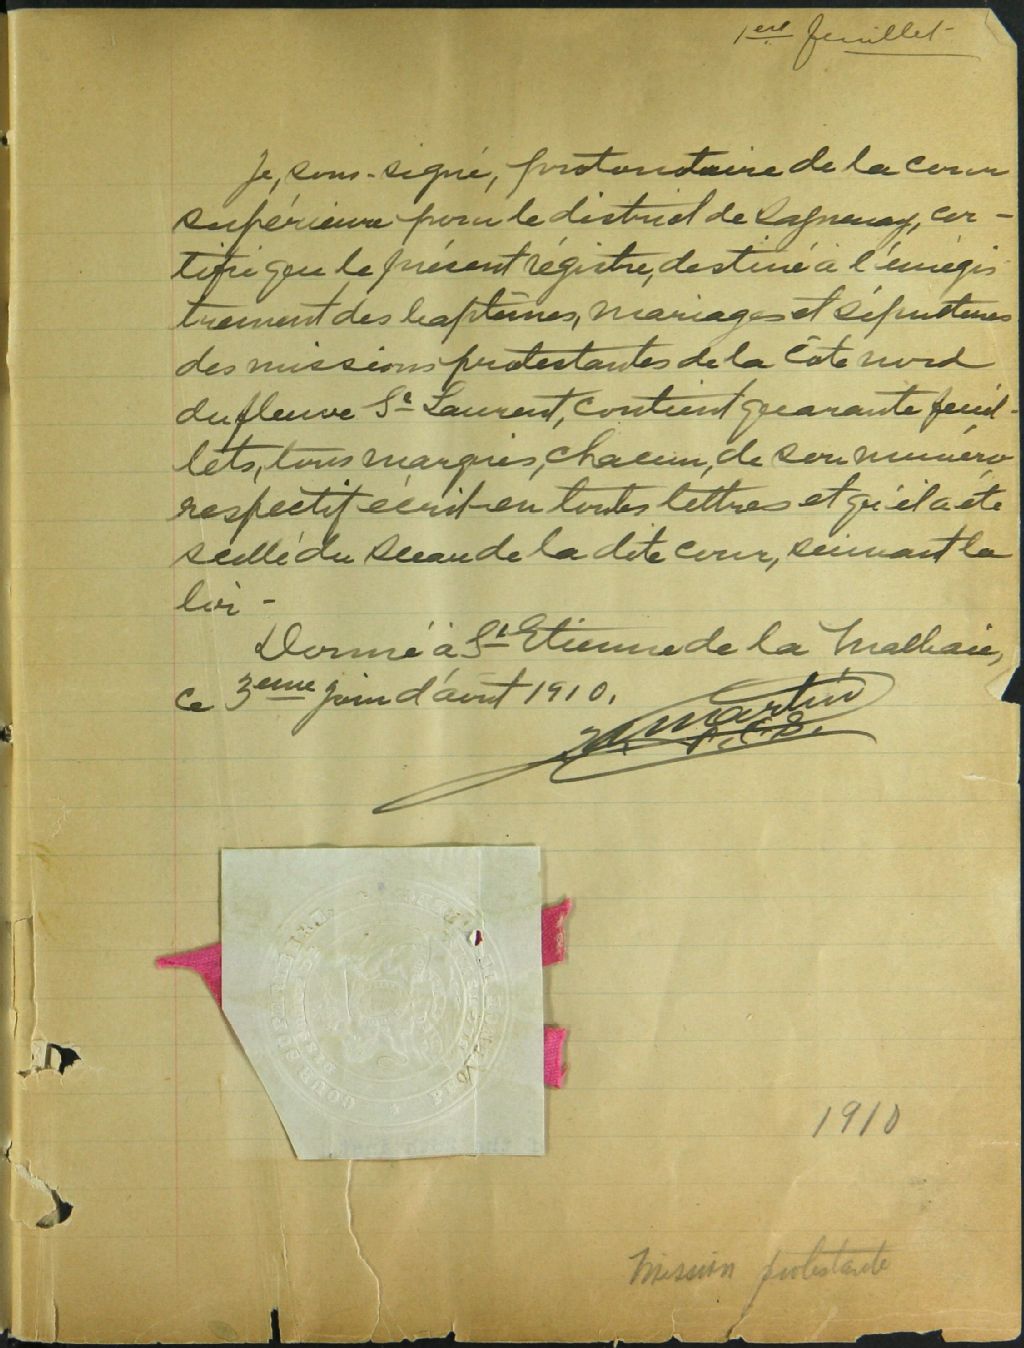 1ère feuillet
Je, sous-signé, protonotaire de la cour
supérieure pour le district de Saguenay, cer-
tifie que le présent régistre, destiné à l'enrégis
trement des baptêmes, mariages et sépultures
des missions protestantes de la Côte nord
du fleuve St Laurent, contient quarante feuil-
lets, tous marqués, chacun, de son numéro
respectif écrit en toutes lettres et qu'il a été
scellé du sceau de la dite cour, suivant la
loi -
Donné à St Etienne de la Malbaie,
ce 3eme jour d'août 1910.
Martin
P.C.S.
1910
Mission protestante